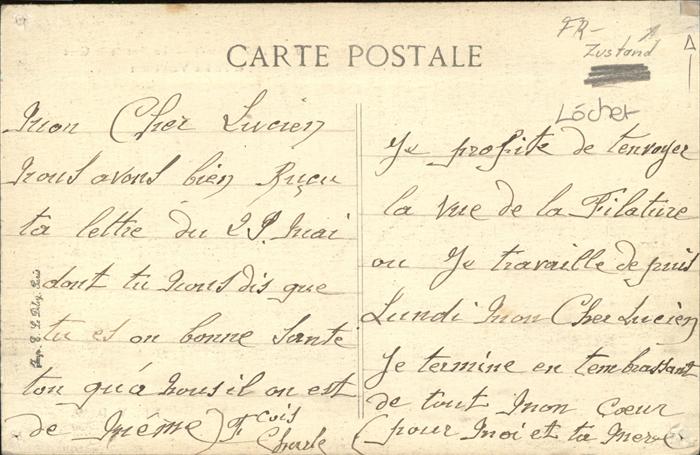 CARTE POSTALE
FR-
Zustand
Löcher
Mon Cher Lucien
Nous avons bien Ruçu
ta lettre du 29. Mai
dont tu Nous dis que
tu es on bonne Sante
ton qu'a Nous il on est
de Même
Fcois
Charle
Je profite de tenvoyer
la vue de la Filature
ou Je travaille depuis
Lundi Mon Cher Lucien
Je termine en tembrassant
de tout Mon Cœur
(pour Moi et ta Mere
Imp. E. Le Deley, Paris